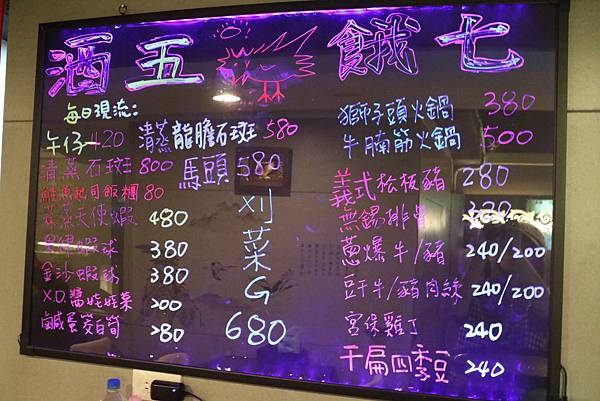 酒 五 餓 七
每日現流:
午仔 420 清蒸龍膽石斑 580
清蒸石斑 800 馬頭 580
鮭魚起司飯糰 80
天使蝦 480
蝦球 380
金沙蝦球 380
X.O.醬娃娃菜 200
鹹蛋筊白筍 280
刈菜G 680
獅子頭火鍋 380
牛腩筋火鍋 500
義式松板豬 280
無錫排骨
蔥爆牛/豬 240/200
豆干牛/豬肉絲 240/200
宮保雞丁 240
干扁四季豆 240